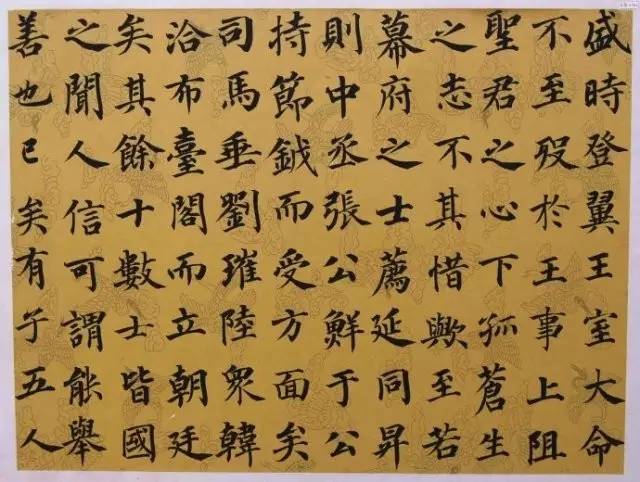 盛時登翼王室大命
不至歿於王事上阻
聖君之心下孤蒼生
之志不其惜歟至若
幕府之士薦延同昇
則中丞張公鮮于公
持節鉞而受方面矣
司馬垂劉璀陸衆韓
洽布臺閣而立朝廷
矣其餘十數士皆國
之聞人信可謂能舉
善也已矣有子五人